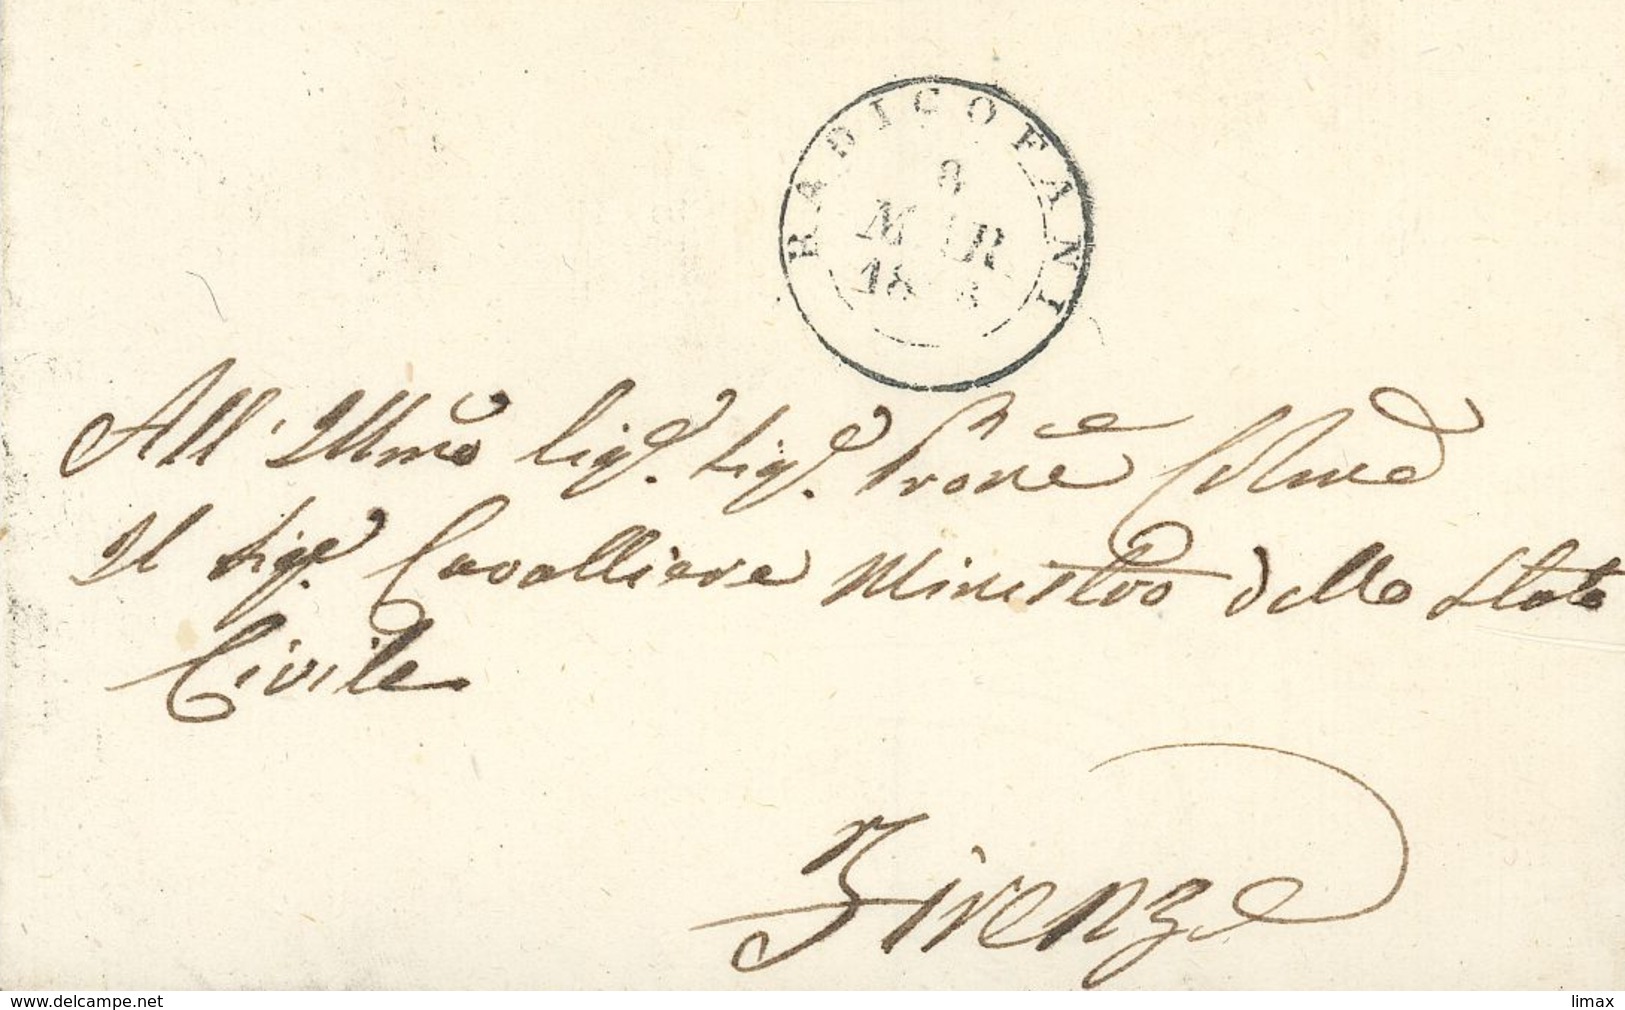 RADICOFANI
8
MAR
18
All' Illmo Sigr. Sigr. Prone Colmo
Il Sigr. Cavalliere Ministro dello Stato
Civile
Firenze
www.delcampe.net
limax